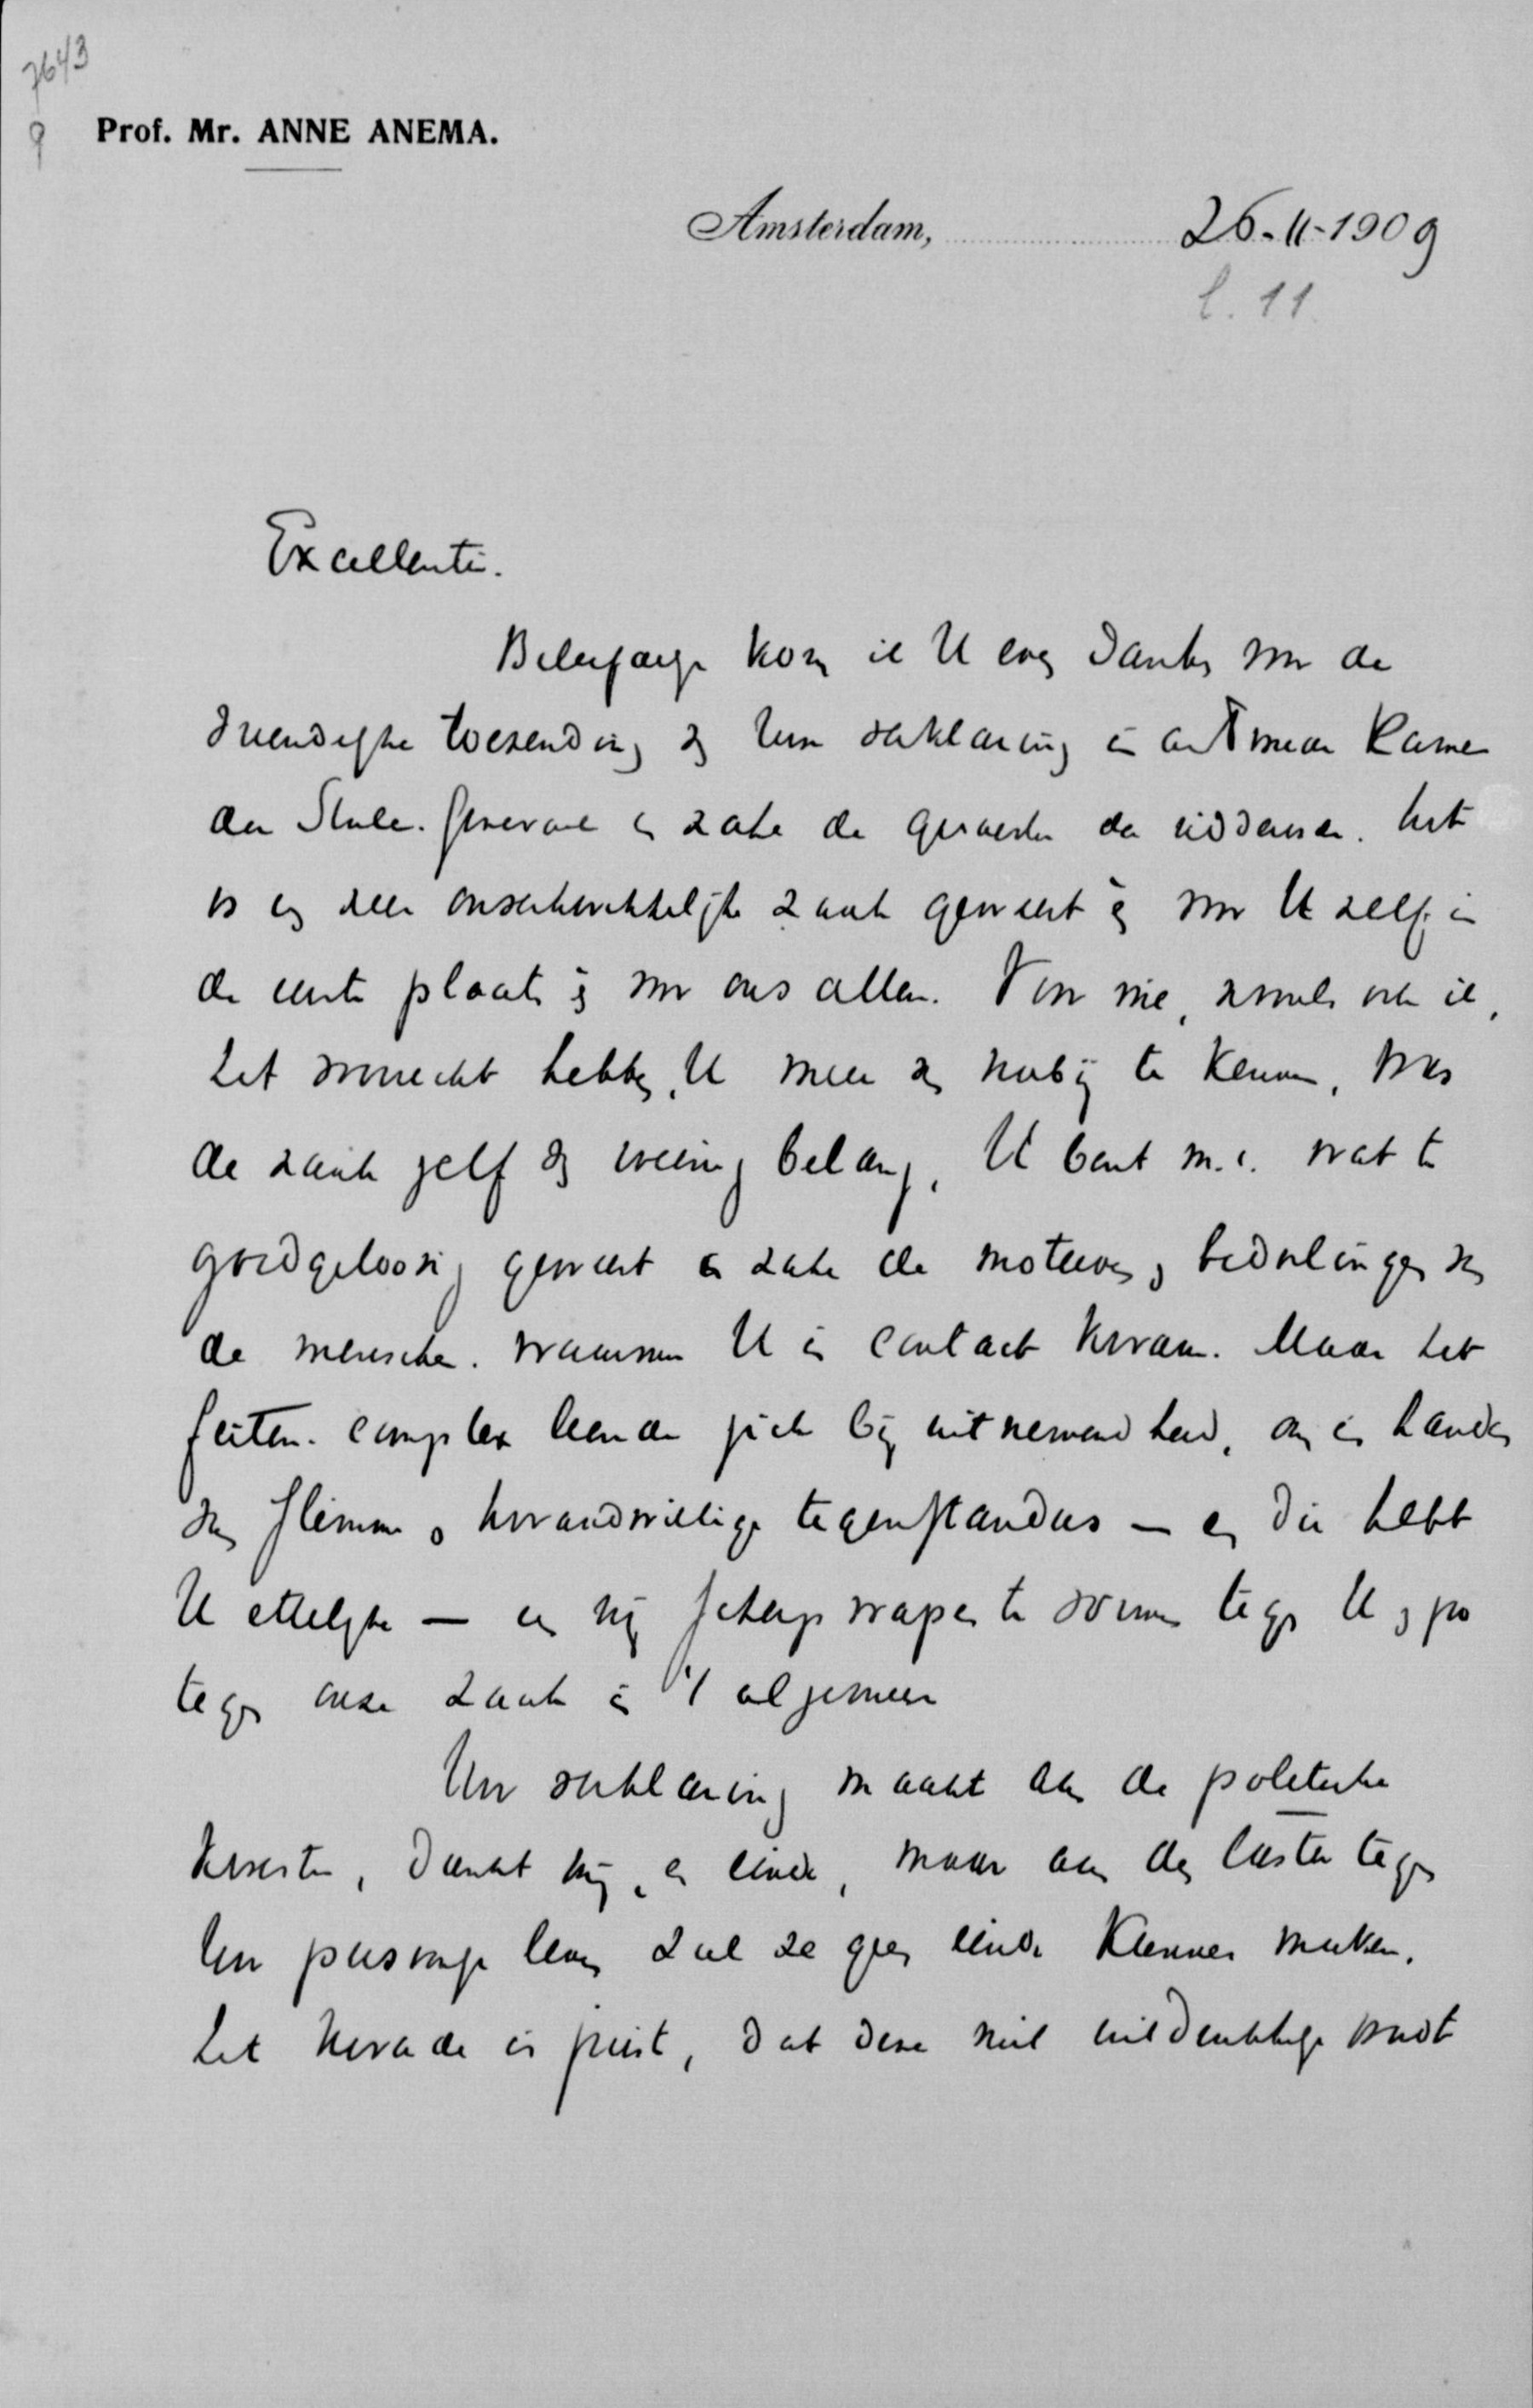 7643
9
Prof. Mr. ANNE ANEMA.
Amsterdam, 26-11-1909
l. 11
Excellentie.
kom ik U even danken voor de
vriendelijke toezending van Uwe verklaring in de Tweede Kamer
der Staten-Generaal in zake de quaestie der ridderorde. Het
is een zeer onverkwikkelijke zaak geweest en voor U zelf in
de eerste plaats en voor ons allen. Voor wie, zooals ook ik,
het voorrecht hebben, U meer van nabij te kennen, was
de zaak zelf van weinig belang, U bent m.i. wat te
goedgeloovig geweest in zake de motieven en bedoelingen van
de menschen waarmee U in contact kwam. Maar het
feiten-complex leende zich bij uitnemendheid, om in handen
van slimme en kwaadwillige tegenstanders — en die hebt
U ettelijke — een scherp wapen te vormen tegen U en zoo
tegen onze zaak in 't algemeen
Uw verklaring maakt aan de politieke
kwestie, dunkt mij, een einde, maar aan den laster tegen
Uw persoonlijk leven zal ze geen einde kunnen maken.
Het kwade is juist, dat deze niet uitdrukkelijk wordt